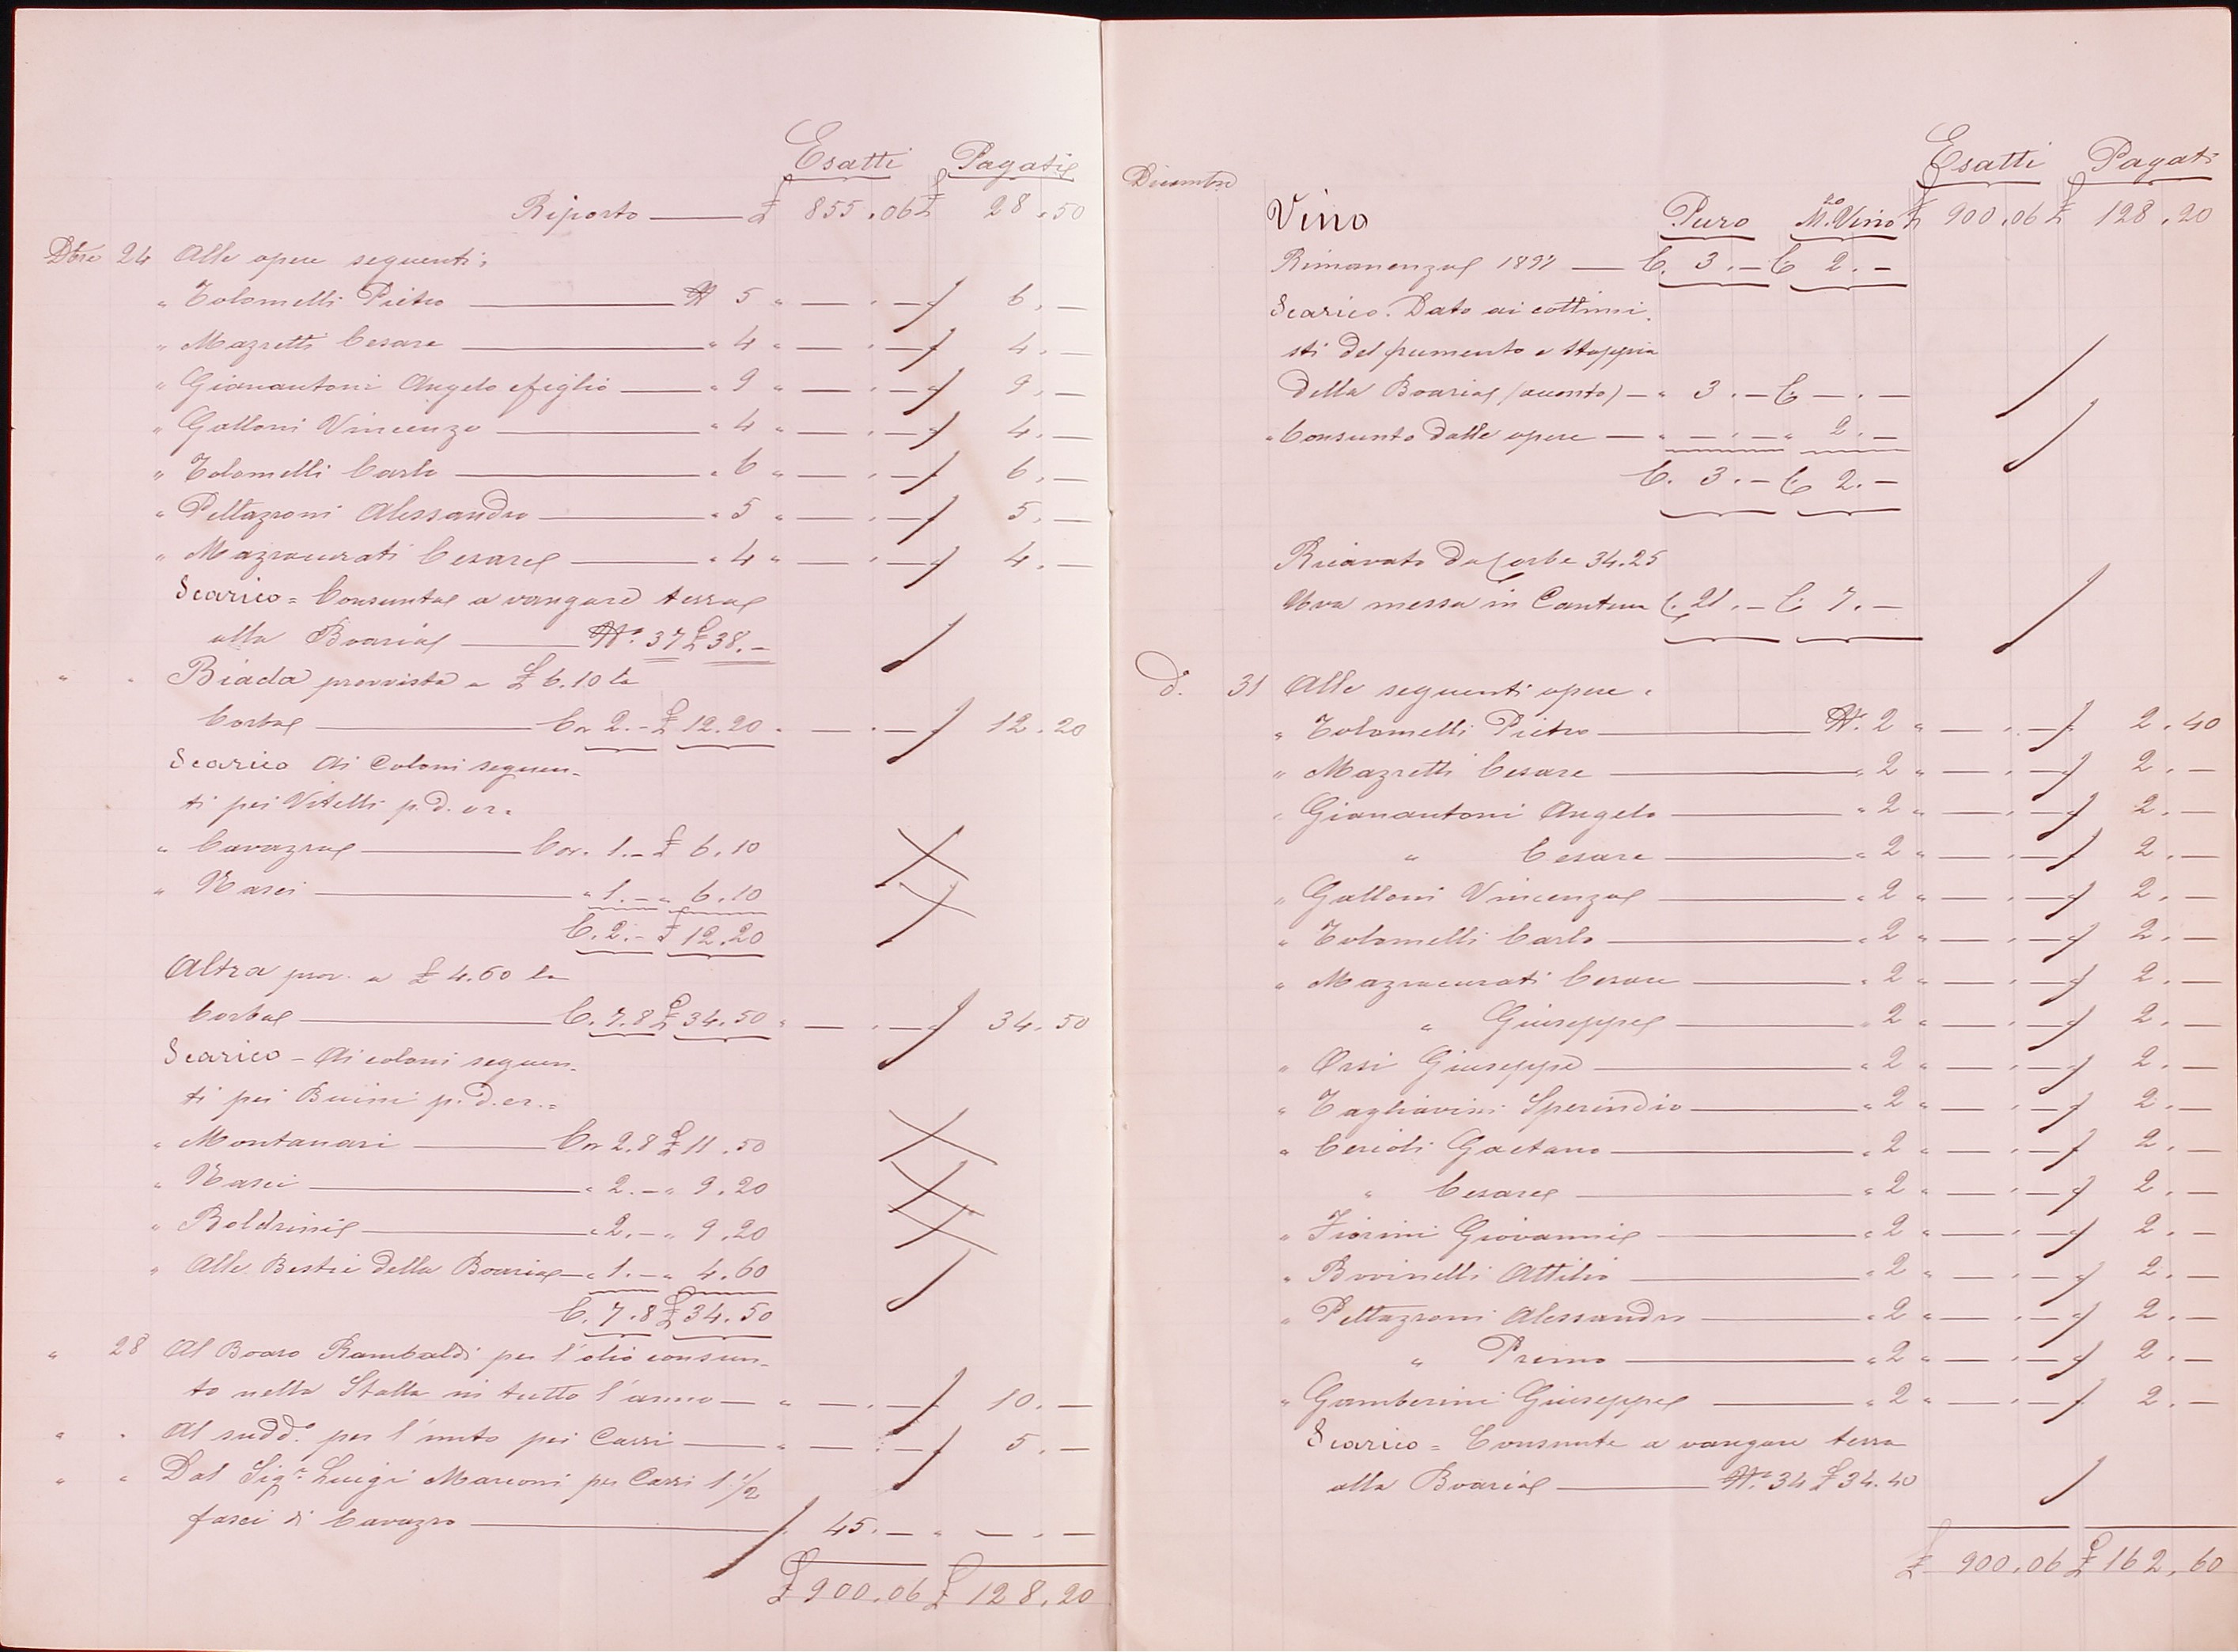 Esatti Pagati
Riporto £ 855.06 £ 28.50
Dbre 24 Alle opere seguenti:
" Tolomelli Pietro N 5 " — . — " 6. —
" Mazzetti Cesare " 4 " — . — " 4. —
" Gianantoni Angelo e figlio " 9 " — . — " 9. —
" Galloni Vincenzo " 4 " — . — " 4. —
" Tolomelli Carlo " 6 " — . — " 6. —
" Pettazzoni Alessandro " 5 " — . — " 5. —
" Mazzacurati Cesare " 4 " — . — " 4. —
Scarico = Consunte a vangare terra
alla Boaria N.° 37 £ 38. —
" " Biada provvista a £ 6.10 la
Corba Cr 2. — £ 12.20 " — . — " 12.20
Scarico Ai Coloni seguen-
ti pei Vitelli p. d. er.=
" Cavazza Cor. 1. — £ 6.10
" Nasci " 1. — " 6.10
C. 2. — £ 12.20
Altra prov. a £ 4.60 la
Corba C. 7.8 £ 34.50 " — . — " 34.50
Scarico - Ai coloni seguen-
ti pei Buini p. d. er.=
" Montanari Cr 2.8 £ 11.50
" Nasci " 2. — " 9.20
" Boldrini " 2. — " 9.20
" Alle Bestie della Boaria " 1. — " 4.60
C. 7.8 £ 34.50
" 28 Al Boaro Rambaldi per l'olio consun-
to nella Stalla in tutto l'anno — " — . — " 10. —
" " Al sudd.° per l'unto pei Carri — " — . — " 5. —
" " Dal Sig.r Luigi Marconi per Carri 1 1/2
fasci di Cavazzo " 45. — " — . —
£ 900.06 £ 128.20
Esatti Pagati
Dicembre
Vino Puro M.zo Vino £ 900.06 £ 128.20
Rimanenza 1891 — C. 3. — C. 2. —
Scarico. Dato ai cottimi-
sti del frumento e stoppia
della Boaria (acconto) — " 3. — C. — . —
" Consunto dalle opere — " — . — " 2. —
C. 3. — C. 2. —
Ricavato da Corbe 34.25
Uva messa in Cantina C. 21. — C. 7. —
d. 31 Alle seguenti opere:
" Tolomelli Pietro N. 2 " — . — " 2.40
" Mazzetti Cesare " 2 " — . — " 2. —
" Gianantoni Angelo " 2 " — . — " 2. —
" Cesare " 2 " — . — " 2. —
" Galloni Vincenzo " 2 " — . — " 2. —
" Tolomelli Carlo " 2 " — . — " 2. —
" Mazzacurati Cesare " 2 " — . — " 2. —
" Giuseppe " 2 " — . — " 2. —
" Orsi Giuseppe " 2 " — . — " 2. —
" Tagliavini Sperindio " 2 " — . — " 2. —
" Cerioli Gaetano " 2 " — . — " 2. —
" Cesare " 2 " — . — " 2. —
" Fiorini Giovanni " 2 " — . — " 2. —
" Bovinelli Attilio " 2 " — . — " 2. —
" Pettazzoni Alessandro " 2 " — . — " 2. —
" Primo " 2 " — . — " 2. —
" Gamberini Giuseppe " 2 " — . — " 2. —
Scarico = Consunte a vangare terra
alla Boaria N.° 34 £ 34.40
£ 900.06 £ 162.60